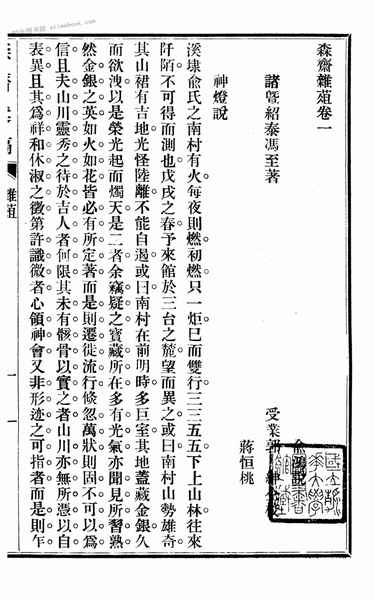 森齋雜葅卷一
諸暨紹泰馮至著
受業
蔣恒桃
神燈說
溪埭俞氏之南村有火每夜則燃初燃只一炬巳而雙行三三五五下上山林往來
阡陌不可得而測也戊戌之春予來館於三台之麓望而異之或曰南村山勢雄奇
其山裙有吉地光怪陸離不能自遏或曰南村在前明時多巨室其地蓋藏金銀久
而欲洩以是榮光起而燭天是二者余竊疑之寶藏所在多有光氣亦聞見所習熟
然金銀之英如火如花皆必有所定著而是則遷徙流行倏忽萬狀則固不可以為
信且夫山川靈秀之待於吉人者何限其未有骸骨以實之者山川亦無所憑以自
表異且其為祥和休淑之徵第許識微者心領神會又非形迹之可指者而是則乍
雜葅
一